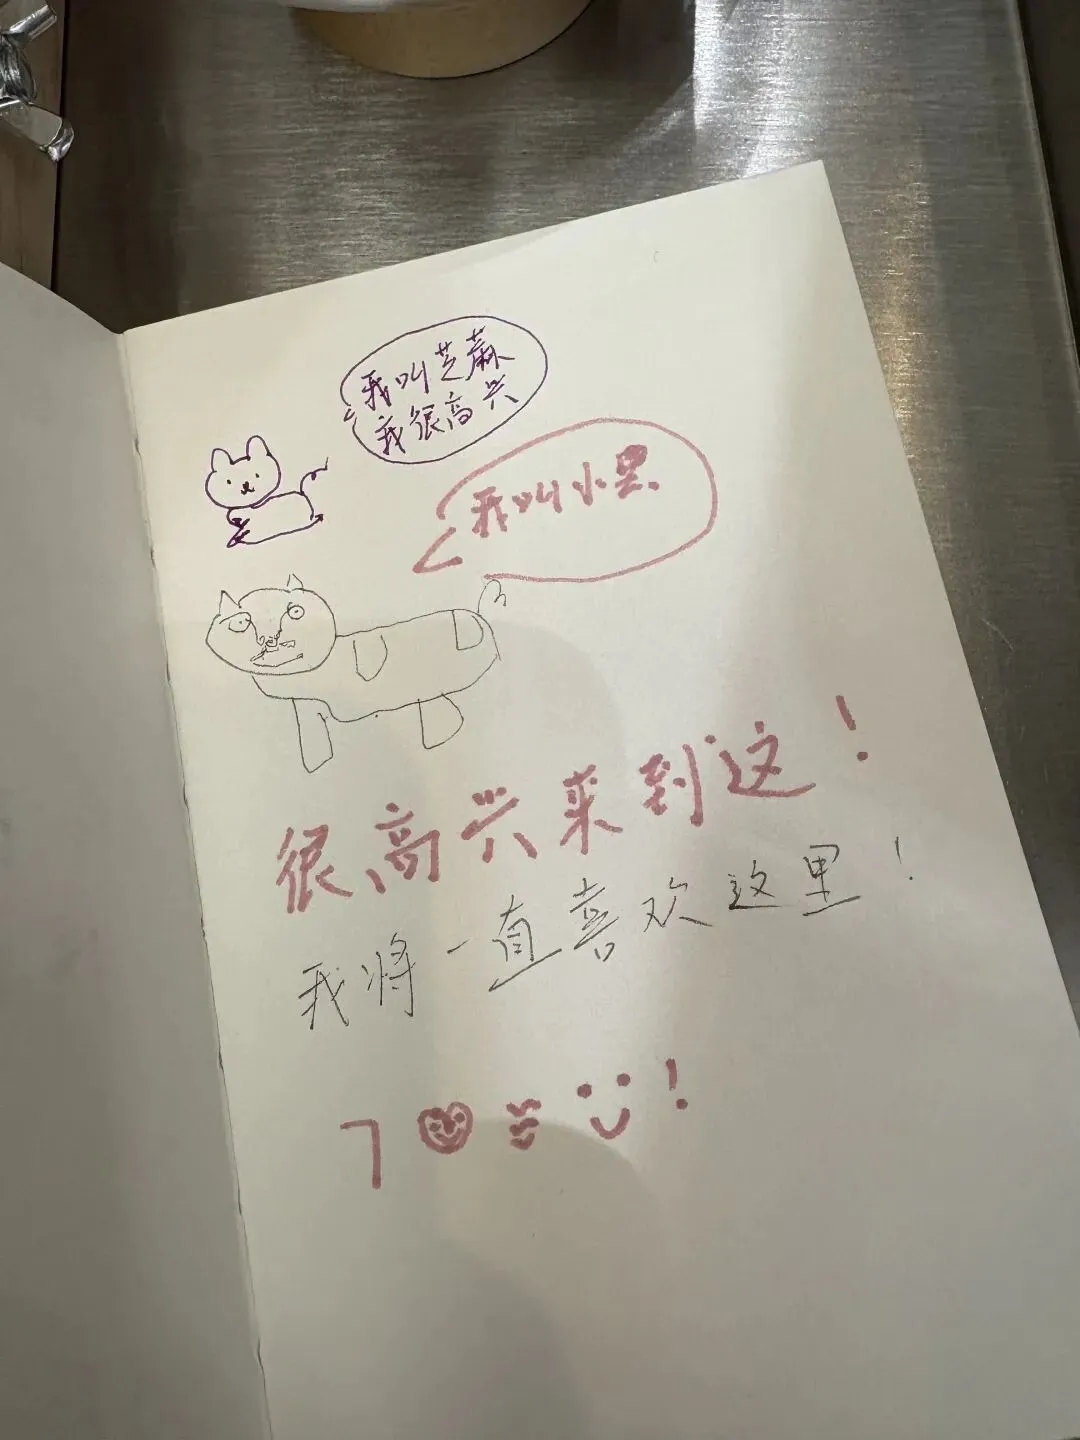 我叫芝蔴
我很高兴
我叫小黑
很高兴来到这!
我将一直喜欢这里!